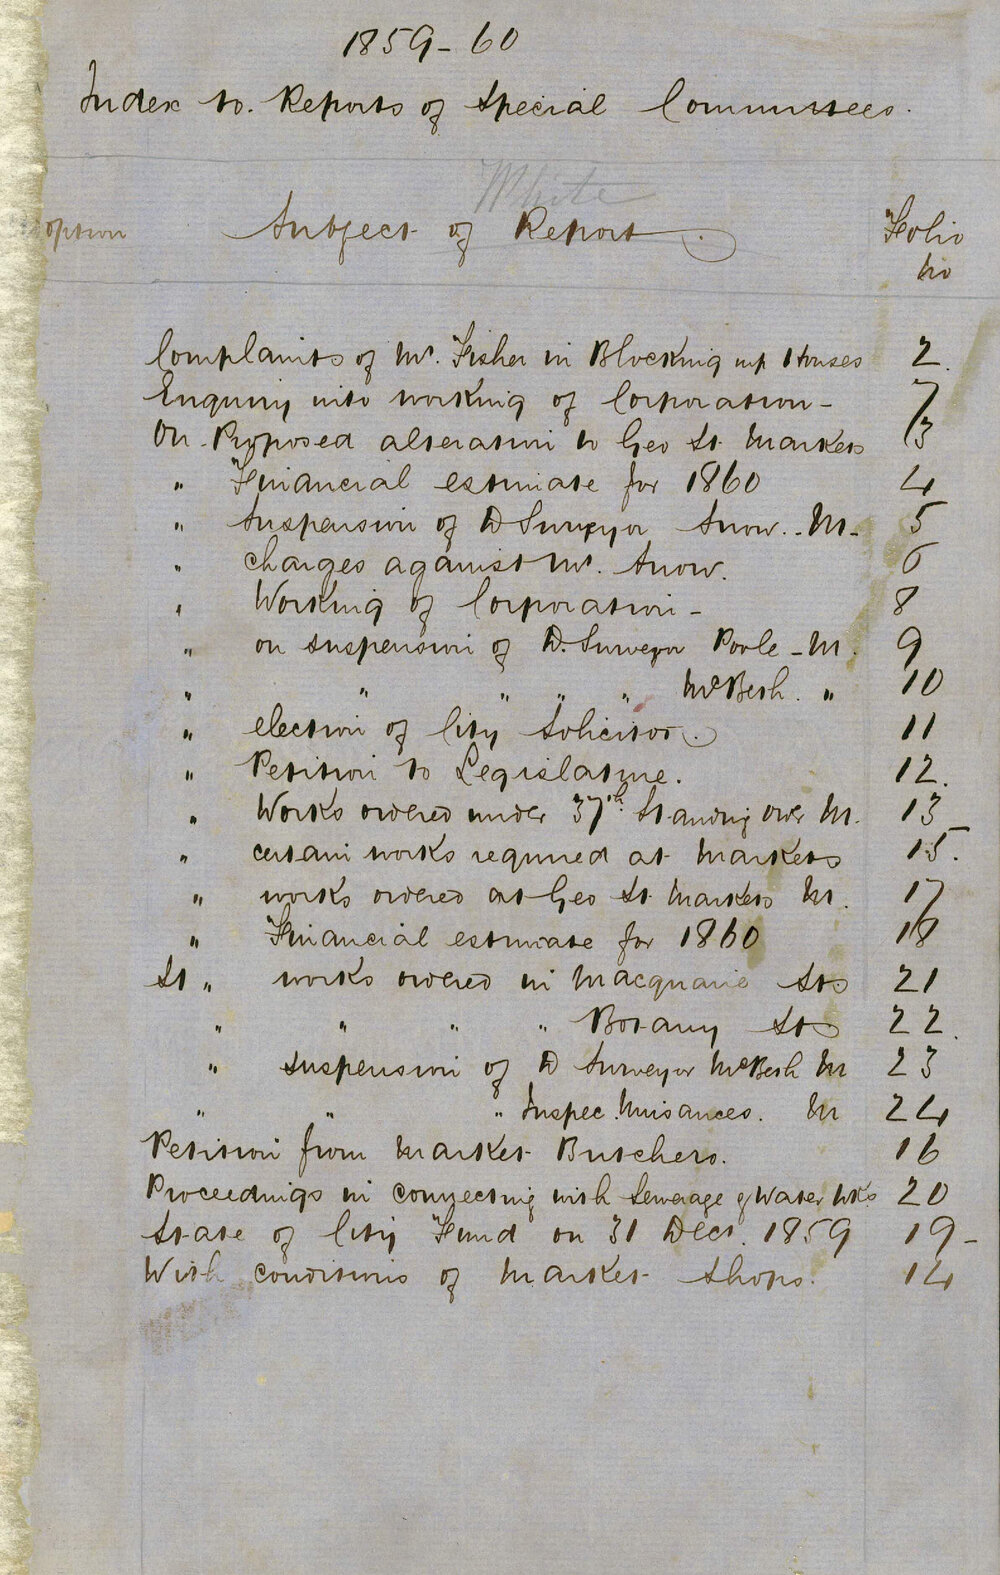 1859-60
Index to Reports of Special Committees.
White
option Subject of Report. Folio
No
Complaints of Mr. Fisher in Blocking up Houses 2.
Enquiry into working of Corporation- 7
On Proposed alteration to Geo St Markets 3
" Financial estimate for 1860 4
" Suspension of D Surveyor Snow.-M- 5
" charges against Mr. Snow. 6
" Working of Corporation- 8
" on suspension of D. Surveyor Poole-M. 9
" " " " " McBeth. " 10
" election of City Solicitor. 11
" Petition to Legislature. 12.
" Works ordered under 37th Standing Order M. 13
" certain works required at Markets 15.
" works ordered at Geo St Markets M. 17
" Financial estimate for 1860 18
St " works ordered in Macquarie St 21
" " " " Botany St 22.
" suspension of D Surveyor McBeth M 23
" " " Inspec. Nuisances. M 24
Petition from Market Butchers. 16
Proceedings in connecting with Sewerage & Water Wks 20
State of City Fund on 31 Dect. 1859 19-
With conditions of Market Shops. 14